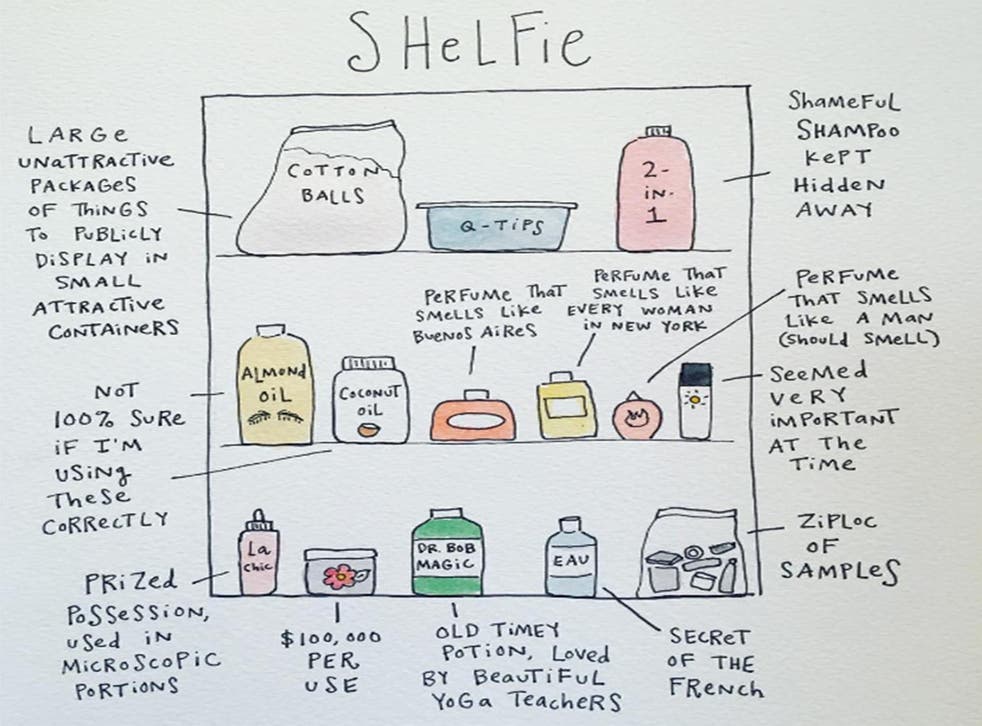 SHeLFie
LARGe
UNATTRACTIVE
PACKAGES
OF THINGS
TO PUBLICLY
DISPLAY IN
SMALL
ATTRACTIVE
CONTAINERS
COTTON
BALLS
Q-TIPS
2-
IN-
1
SHAMEFUL
SHAMPOO
KEPT
HIDDEN
AWAY
PERFUME THAT
SMELLS LIKE
BUENOS AIRES
PERFUME THAT
SMELLS LIKE
EVERY WOMAN
IN NEW YORK
PERFUME
THAT SMELLS
LIKE A MAN
(SHOULD SMELL)
NOT
100% SURE
IF I'M
USING
THESE
CORRECTLY
ALMOND
OIL
COCONUT
OIL
SEEMED
VERY
IMPORTANT
AT THE
TIME
La
chic
DR. BOB
MAGIC
EAU
ZIPLOC
OF
SAMPLES
PRIZED
POSSESSION,
USED IN
MICROSCOPIC
PORTIONS
$100,000
PER
USE
OLD TIMEY
POTION, LOVED
BY BEAUTIFUL
YOGA TEACHERS
SECRET
OF THE
FRENCH